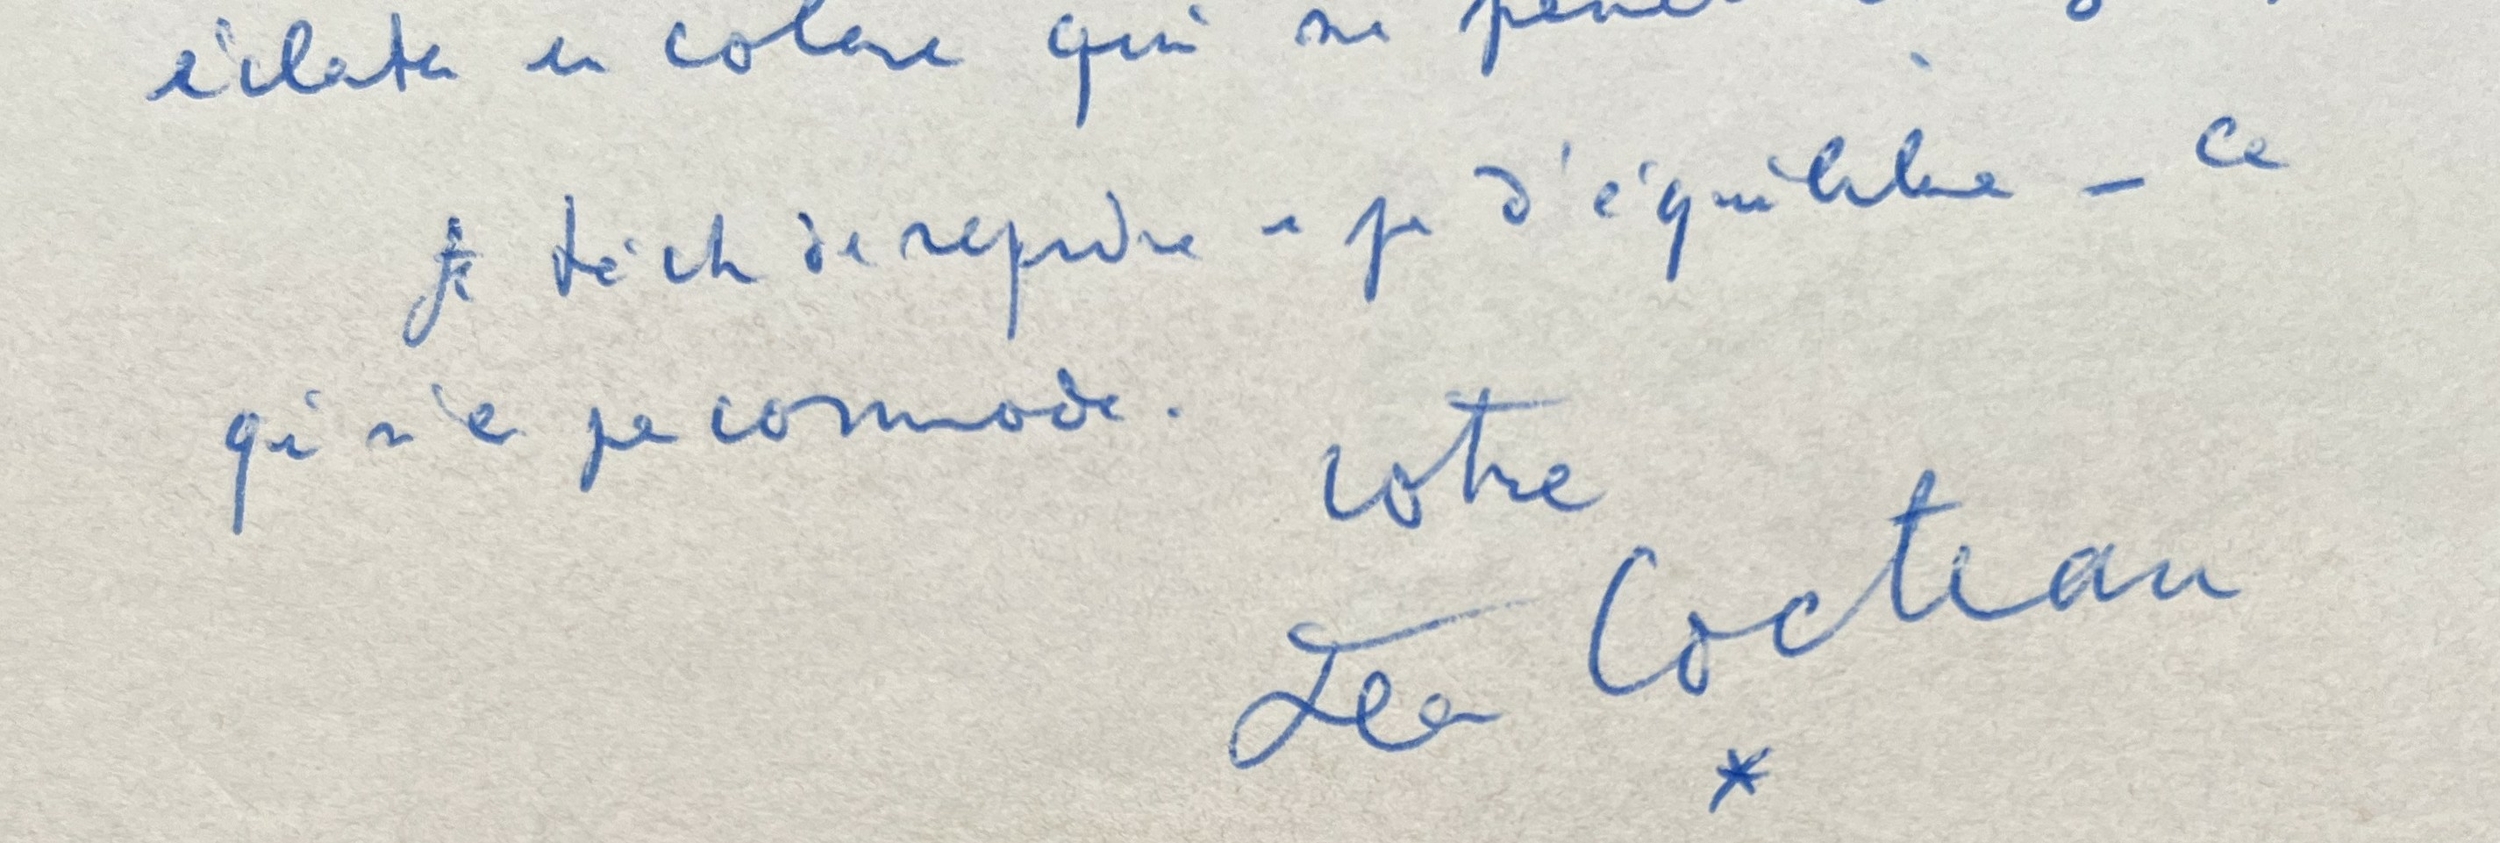 éclater en colère qui ne
Je tâche de reprendre un peu d'équilibre — ce
qui n'est pas commode.
votre
Jean Cocteau
*